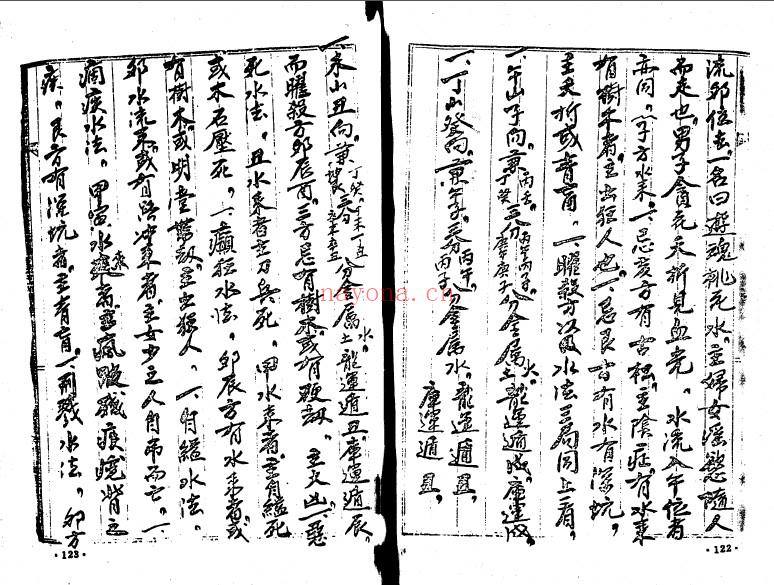 流卯位去。一名曰遊魂桃花水。主婦女淫慾隨人
而走也。男子貪花柳見血光。水流入午位者
亦同。
有樹木者主出狂人也。一忌艮方有水有深坑。
主夭折或青盲。一、曜殺方以及水法三局同上看。
一、午山子向。兼丁癸三分丙午丙子庚午庚子分金屬火土。龍運遁戌。庫運戌
一、丁山癸向。兼午子三分丙午丙子分金屬水。龍運遁丑。庫運遁丑。
一、未山丑向。兼丁癸三分分金屬水土龍運遁丑。庫運遁辰。
而曜殺方卯辰酉三方忌有樹木或有 。主大凶。一惡
死水法。丑水來者主刀兵死。甲水來者主自縊死
或木石壓死。一、癲狂水法。卯辰方有水來者或
有樹木或明堂 主出狂人。一、自縊水法。
卯水流來或有路沖來者。主女少之人自吊而亡。一、
痼疾水法。甲寅水來者主瘋跛 痕 背之
疾。艮方有深坑者主青盲。一、刑戮水法。卯方
·122·
·123·
nayona.cn